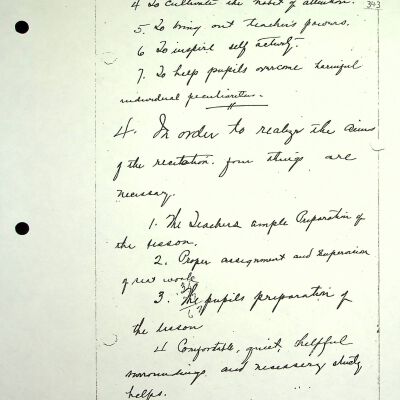 343
4 To cultivate the habit of attention.
5. To bring out teacher's powers.
6 To inspire self activity.
7. To help pupils overcome harmful
individual peculiarities.
4. In order to realize the aims
of the recitation, four things are
necessary.
1. The Teachers ample Preparation of
the lesson.
2. Proper assignment and Supervision
of seat work
3. The pupils preparation of
the lesson
4 Comfortable, quiet, helpful
surroundings and necessary study
helps.